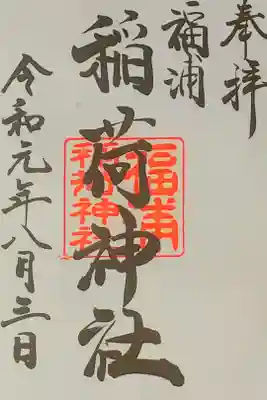 奉拝
福浦
稲荷神社
福浦
稲荷神社
令和元年八月三日